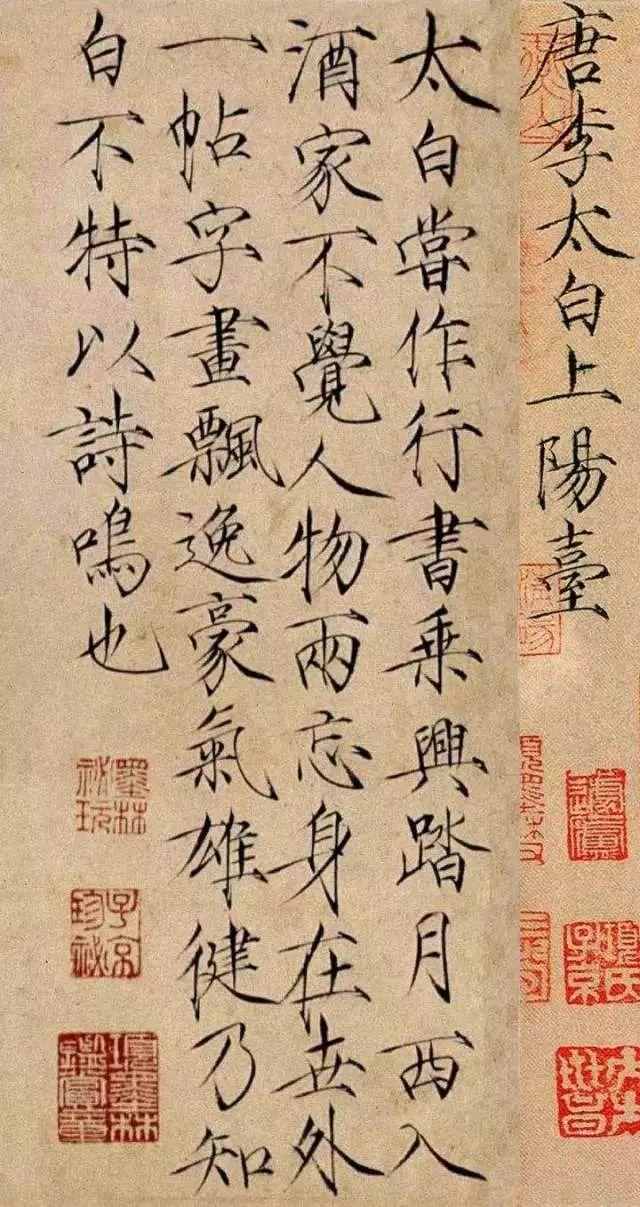 唐李太白上陽臺
太白嘗作行書乗興踏月西入
酒家不覺人物兩忘身在世外
一帖字畫飄逸豪氣雄健乃知
白不特以詩鳴也
墨林
祕玩
子京
珍祕
項墨林
鑑賞章
項氏
子京